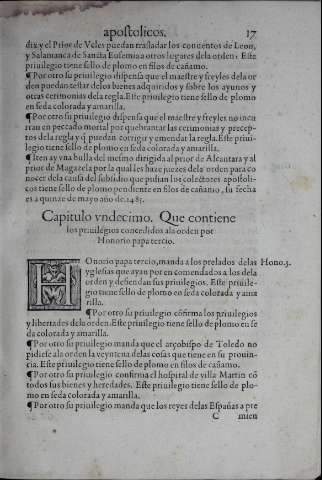 apostolicos. 17
dix y el Prior de Vcles puedan trasladar los conuentos de Leon,
y Salamanca de Sancta Eufemia a otros lugares dela orden: Este
priuilegio tiene sello de plomo en filos de cañamo.
¶ Por otro su priuilegio dispensa que el maestre y freyles dela or
den puedan testar delos bienes adquiridos y sobre los ayunos y
otras cerimonias dela regla. Este priuilegio tiene sello de plomo
en seda colorada y amarilla.
¶ Por otro su priuilegio dispensa que el maestre y freyles no incu
rran en peccado mortal por quebrantar las cerimonias y precep-
tos dela regla y q̃ puedan corrigir y emendar la regla. Este priui-
legio tiene sello de plomo en seda colorada y amarilla.
¶ Iten ay vna bulla del mesmo dirigida al prior de Alcantara y al
prior de Magazela por la qual les haze juezes dela orden para co
nocer dela causa del subsidio que pidian los colectores apostoli-
cos tiene sello de plomo pendiente en filos de cañamo, su fecha
es a quinze de mayo año de.1485.
Capitulo vndecimo. Que contiene
los priuilegios concedidos ala orden por
Honorio papa tercio.
HOnorio papa tercio, manda a los prelados delas Hono.3.
yglesias que ayan por encomendados a los dela
orden y defiendan sus priuilegios. Este priuile-
gio tiene sello de plomo en seda colorada y ama
rilla.
¶ Por otro su priuilegio cõfirma los priuilegios
y libertades dela orden. Este priuilegio tiene sello de plomo en se
da colorada y amarilla.
¶ Por otro su priuilegio manda que el arçobispo de Toledo no
pidiese ala orden la veyntena delas cosas que tiene en su prouin-
cia. Este priuilegio tiene sello de plomo en filos de cañamo.
¶ Por otro su priuilegio confirma el hospital de villa Martin cõ
todos sus bienes y heredades. Este priuilegio tiene sello de plo-
mo en seda colorada y amarilla.
¶ Por otro su priuilegio manda que los reyes delas Españas a pre
C mien